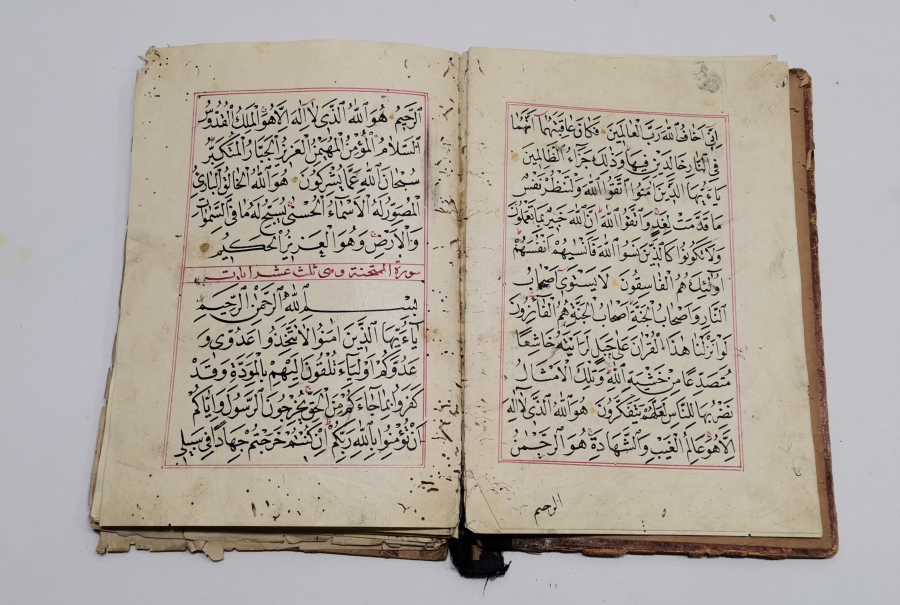 اني اخاف الله رب العالمين فكان عاقبتهما انهما
في النار خالدين فيها وذلك جزاء الظالمين
ياءيها الذين امنوا اتقوا الله ولتنظر نفس
ما قدمت لغد واتقوا الله ان الله خبير بما تعملون
ولا تكونوا كالذين نسوا الله فانسيهم انفسهم
اولئك هم الفاسقون لا يستوي اصحاب
النار واصحاب الجنة اصحاب الجنة هم الفائزون
لو انزلنا هذا القران على جبل لرايته خاشعا
متصدعا من خشية الله وتلك الامثال
نضربها للناس لعلهم يتفكرون هو الله الذي لا اله
الا هو عالم الغيب والشهادة هو الرحمن
الرحيم
الرحيم هو الله الذي لا اله الا هو الملك القدوس
السلام المؤمن المهيمن العزيز الجبار المتكبر
سبحان الله عما يشركون هو الله الخالق البارئ
المصور له الاسماء الحسنى يسبح له ما في السموات
والارض وهو العزيز الحكيم
سورة الممتحنة وهي ثلث عشر ايات
بسم الله الرحمن الرحيم
ياءيها الذين امنوا لا تتخذوا عدوي و
عدوكم اولياء تلقون اليهم بالمودة وقد
كفروا بما جاءكم من الحق يخرجون الرسول واياكم
ان تؤمنوا بالله ربكم ان كنتم خرجتم جهادا في سبيلي